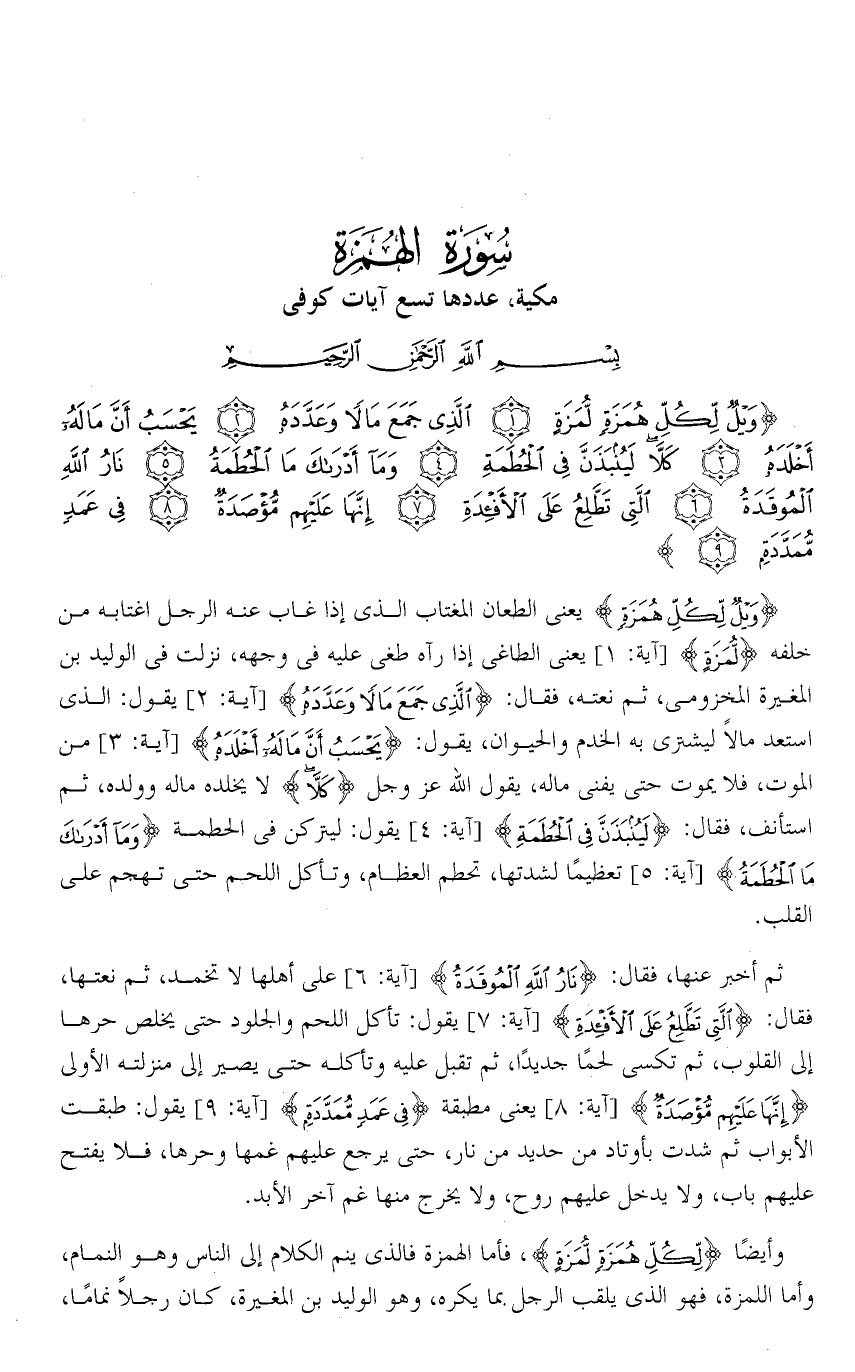 سُورَة الهُمَزة
مكية، عددها تسع آيات كوفى
بِسْمِ ٱللَّهِ ٱلرَّحْمَٰنِ ٱلرَّحِيمِ
﴿وَيْلٌ لِّكُلِّ هُمَزَةٍ لُّمَزَةٍ ١ ٱلَّذِى جَمَعَ مَالًا وَعَدَّدَهُۥ ٢ يَحْسَبُ أَنَّ مَالَهُۥٓ
أَخْلَدَهُۥ ٣ كَلَّا ۖ لَيُنۢبَذَنَّ فِى ٱلْحُطَمَةِ ٤ وَمَآ أَدْرَىٰكَ مَا ٱلْحُطَمَةُ ٥ نَارُ ٱللَّهِ
ٱلْمُوقَدَةُ ٦ ٱلَّتِى تَطَّلِعُ عَلَى ٱلْأَفْـِٔدَةِ ٧ إِنَّهَا عَلَيْهِم مُّؤْصَدَةٌ ٨ فِى عَمَدٍ
مُّمَدَّدَةٍۭ ٩ ﴾
﴿وَيْلٌ لِّكُلِّ هُمَزَةٍ﴾ يعنى الطعان المغتاب الـذى إذا غـاب عنـه الرجـل اغتابـه مـن
خلفه ﴿لُّمَزَةٍ﴾ [آية: ١] يعنى الطاغى إذا رآه طغى عليه فى وجهه، نزلت فى الوليد بن
المغيرة المخزومـى، ثـم نعتـه، فقـال: ﴿ٱلَّذِى جَمَعَ مَالًا وَعَدَّدَهُۥ﴾ [آيـة: ٢] يقـول: الـذى
استعد مالاً ليشترى به الخدم والحيـوان، يقـول: ﴿يَحْسَبُ أَنَّ مَالَهُۥٓ أَخْلَدَهُۥ﴾ [آيـة: ٣] مـن
الموت، فلا يموت حتى يفنى ماله، يقول الله عز وجل ﴿كَلَّا ۖ﴾ لا يخلده ماله وولده، ثـم
استأنف، فقال: ﴿لَيُنۢبَذَنَّ فِى ٱلْحُطَمَةِ﴾ [آية: ٤] يقول: ليتركن فى الحطمـة ﴿وَمَآ أَدْرَىٰكَ
مَا ٱلْحُطَمَةُ﴾ [آية: ٥] تعظيمًا لشدتها، تحطم العظـام، وتـأكل اللحـم حتـى تـهجـم علـى
القلب.
ثم أخبر عنها، فقال: ﴿نَارُ ٱللَّهِ ٱلْمُوقَدَةُ﴾ [آية: ٦] على أهلها لا تخمـد، ثـم نعتـها،
فقال: ﴿ٱلَّتِى تَطَّلِعُ عَلَى ٱلْأَفْـِٔدَةِ﴾ [آية: ٧] يقول: تأكل اللحم والجلود حتى يخلص حرهـا
إلى القلوب، ثم تكسى لحمًا جديدًا، ثم تقبل عليه وتأكلـه حتـى يصـير إلى منزلتـه الأولى
﴿إِنَّهَا عَلَيْهِم مُّؤْصَدَةٌ﴾ [آية: ٨] يعنى مطبقة ﴿فِى عَمَدٍ مُّمَدَّدَةٍۭ﴾ [آية: ٩] يقول: طبقـت
الأبواب ثم شدت بأوتاد من حديد من نار، حتى يرجع عليهم غمها وحرها، فـلا يفتـح
عليهم باب، ولا يدخل عليهم روح، ولا يخرج منها غم آخر الأبد.
وأيضًا ﴿لِّكُلِّ هُمَزَةٍ لُّمَزَةٍ﴾، فأما الهمزة فالذى ينم الكلام إلى الناس وهـو النمـام،
وأما اللمزة، فهو الذى يلقب الرجل بما يكره، وهو الوليد بن المغيرة، كـان رجـلاً نمامًـا،